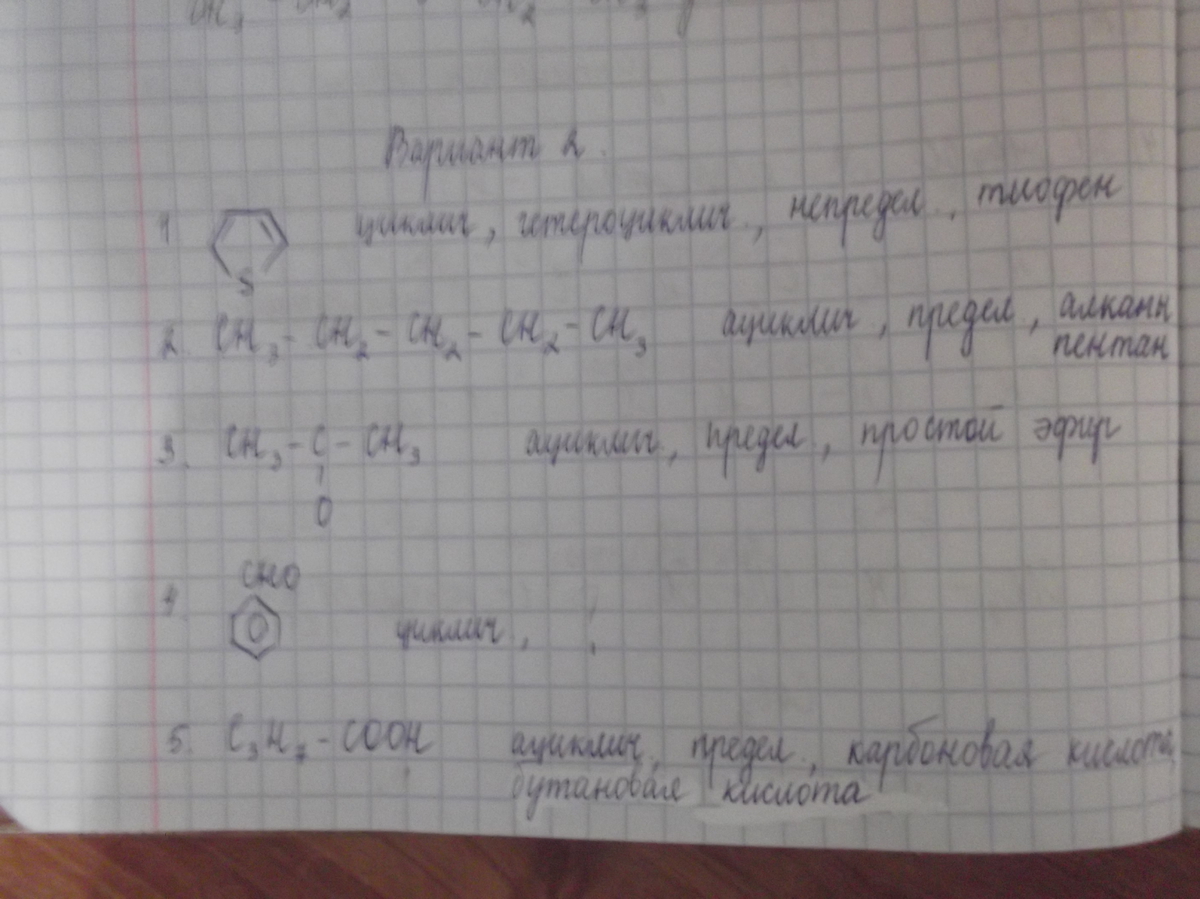 CH3 CH2 CH2
Вариант 2.
1 S циклич, гетероциклич, непредел, тиофен
2. CH3-CH2-CH2-CH2-CH3 ациклич, предел, алканы
пентан
3. CH3-C-CH3 ациклич, предел, простой эфир
O
CHO
4. циклич,
5. C3H7-COOH ациклич, предел, карбоновая кислота,
бутановая кислота